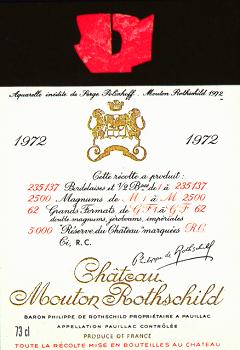 Aquarelle inédite de Serge Poliakoff - Mouton Rothschild 1972
1972 1972
Cette récolte a produit:
235137 Bordelaises et 1/2 Bses de 1 à 235137
2500 Magnums de M 1 à M 2500
62 Grands Formats de G F 1 à G F 62
double magnums, jéroboams, impériales
5000 "Réserve du Château" marquées R.C.
Ci, R.C.
Philippe de Rothschild
Château
Mouton Rothschild
BARON PHILIPPE DE ROTHSCHILD PROPRIÉTAIRE A PAUILLAC
APPELLATION PAUILLAC CONTRÔLÉE
73 cl PRODUCE OF FRANCE
TOUTE LA RÉCOLTE MISE EN BOUTEILLES AU CHÂTEAU